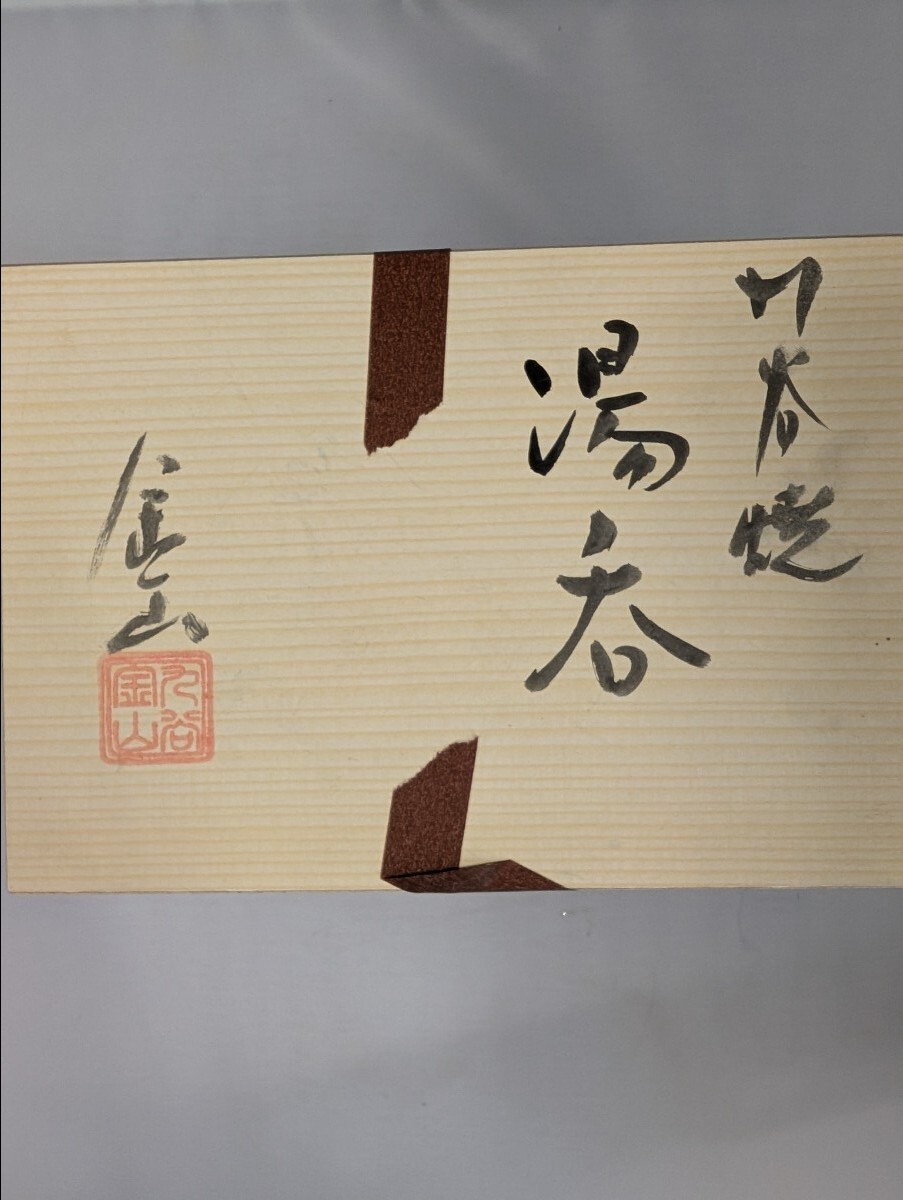 九谷焼
湯呑
金山
九谷
金山